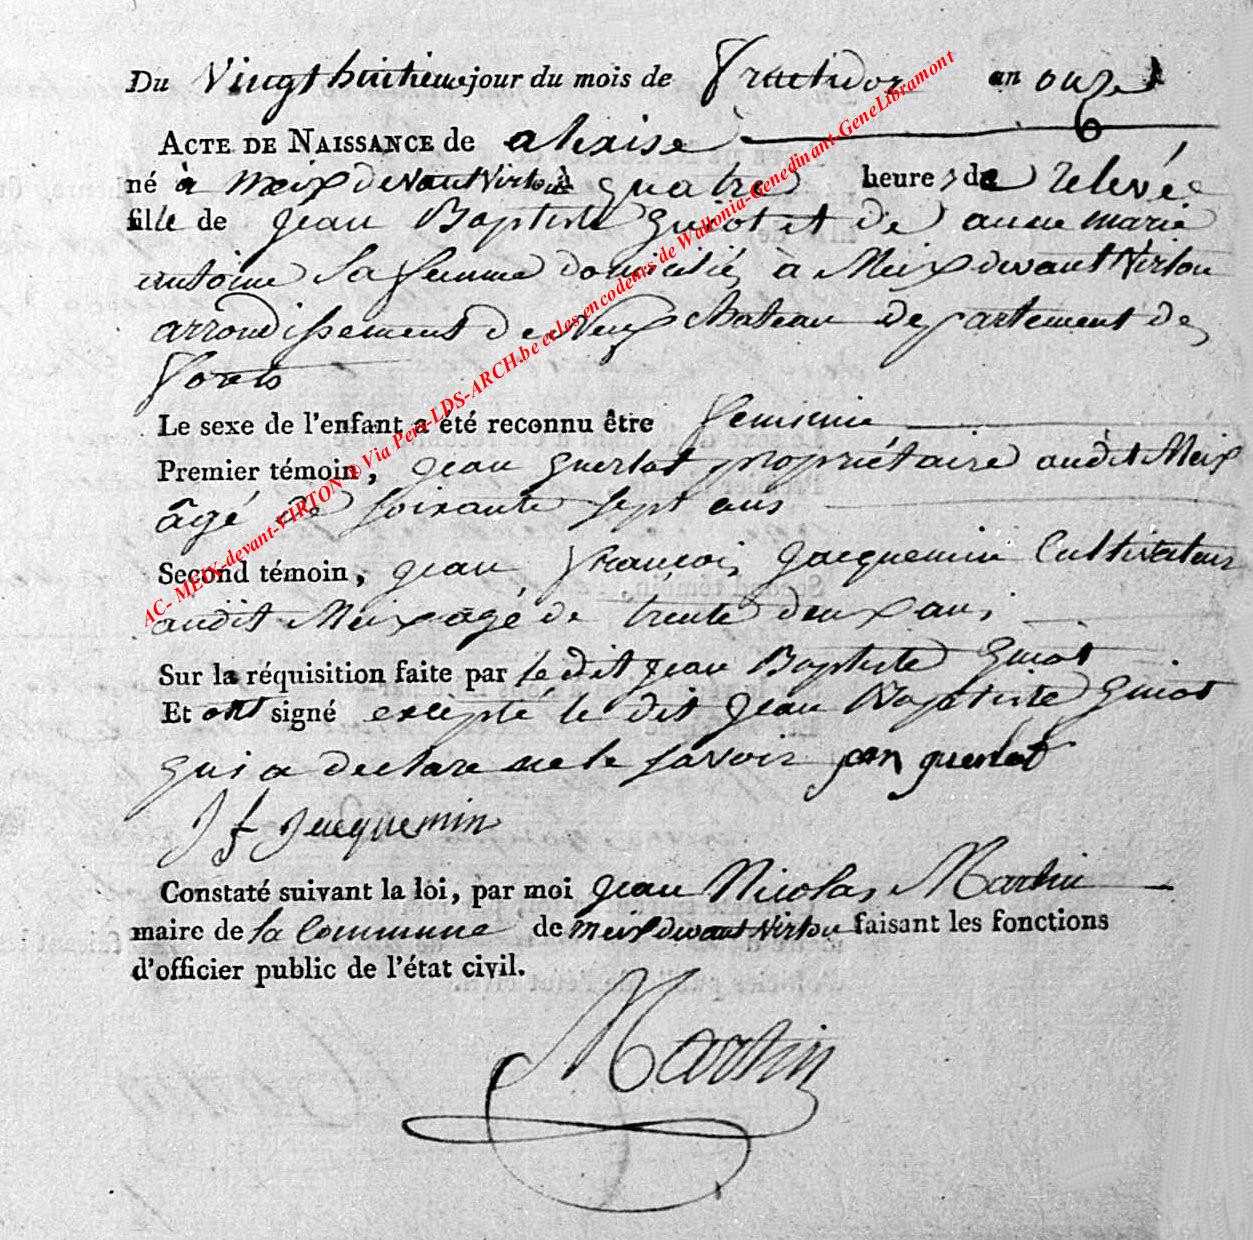 Du Vingt huitieme jour du mois de Fructidor an onze
ACTE DE NAISSANCE de alexise
né à Meix devant Virton à quatre heures de relevée
fille de Jean Baptiste Guiot et de anne marie
antoine sa femme domicilié à Meix devant Virton
arrondissement de Neufchateau departement de
forets
Le sexe de l'enfant a été reconnu être feminin
Premier témoin, Jean Guerlot propriétaire audit Meix
âgé de soixante sept ans
Second témoin, Jean françois Jacquemin Cultivateur
audit Meix agé de trente deux ans
Sur la réquisition faite par le dit Jean Baptiste Guiot
Et ont signé excepté le dit Jean Baptiste Guiot
qui a declare ne le savoir jan guerlot
J f Jacquemin
Constaté suivant la loi, par moi Jean Nicolas Martin
maire de la Commune de Meix devant Virton faisant les fonctions
d'officier public de l'état civil.
Martin
AC- MEIX-devant-VIRTON © Via Pers-LDS-ARCH.be et les encodeurs de Wallonia-Genedinant-GeneLibramont